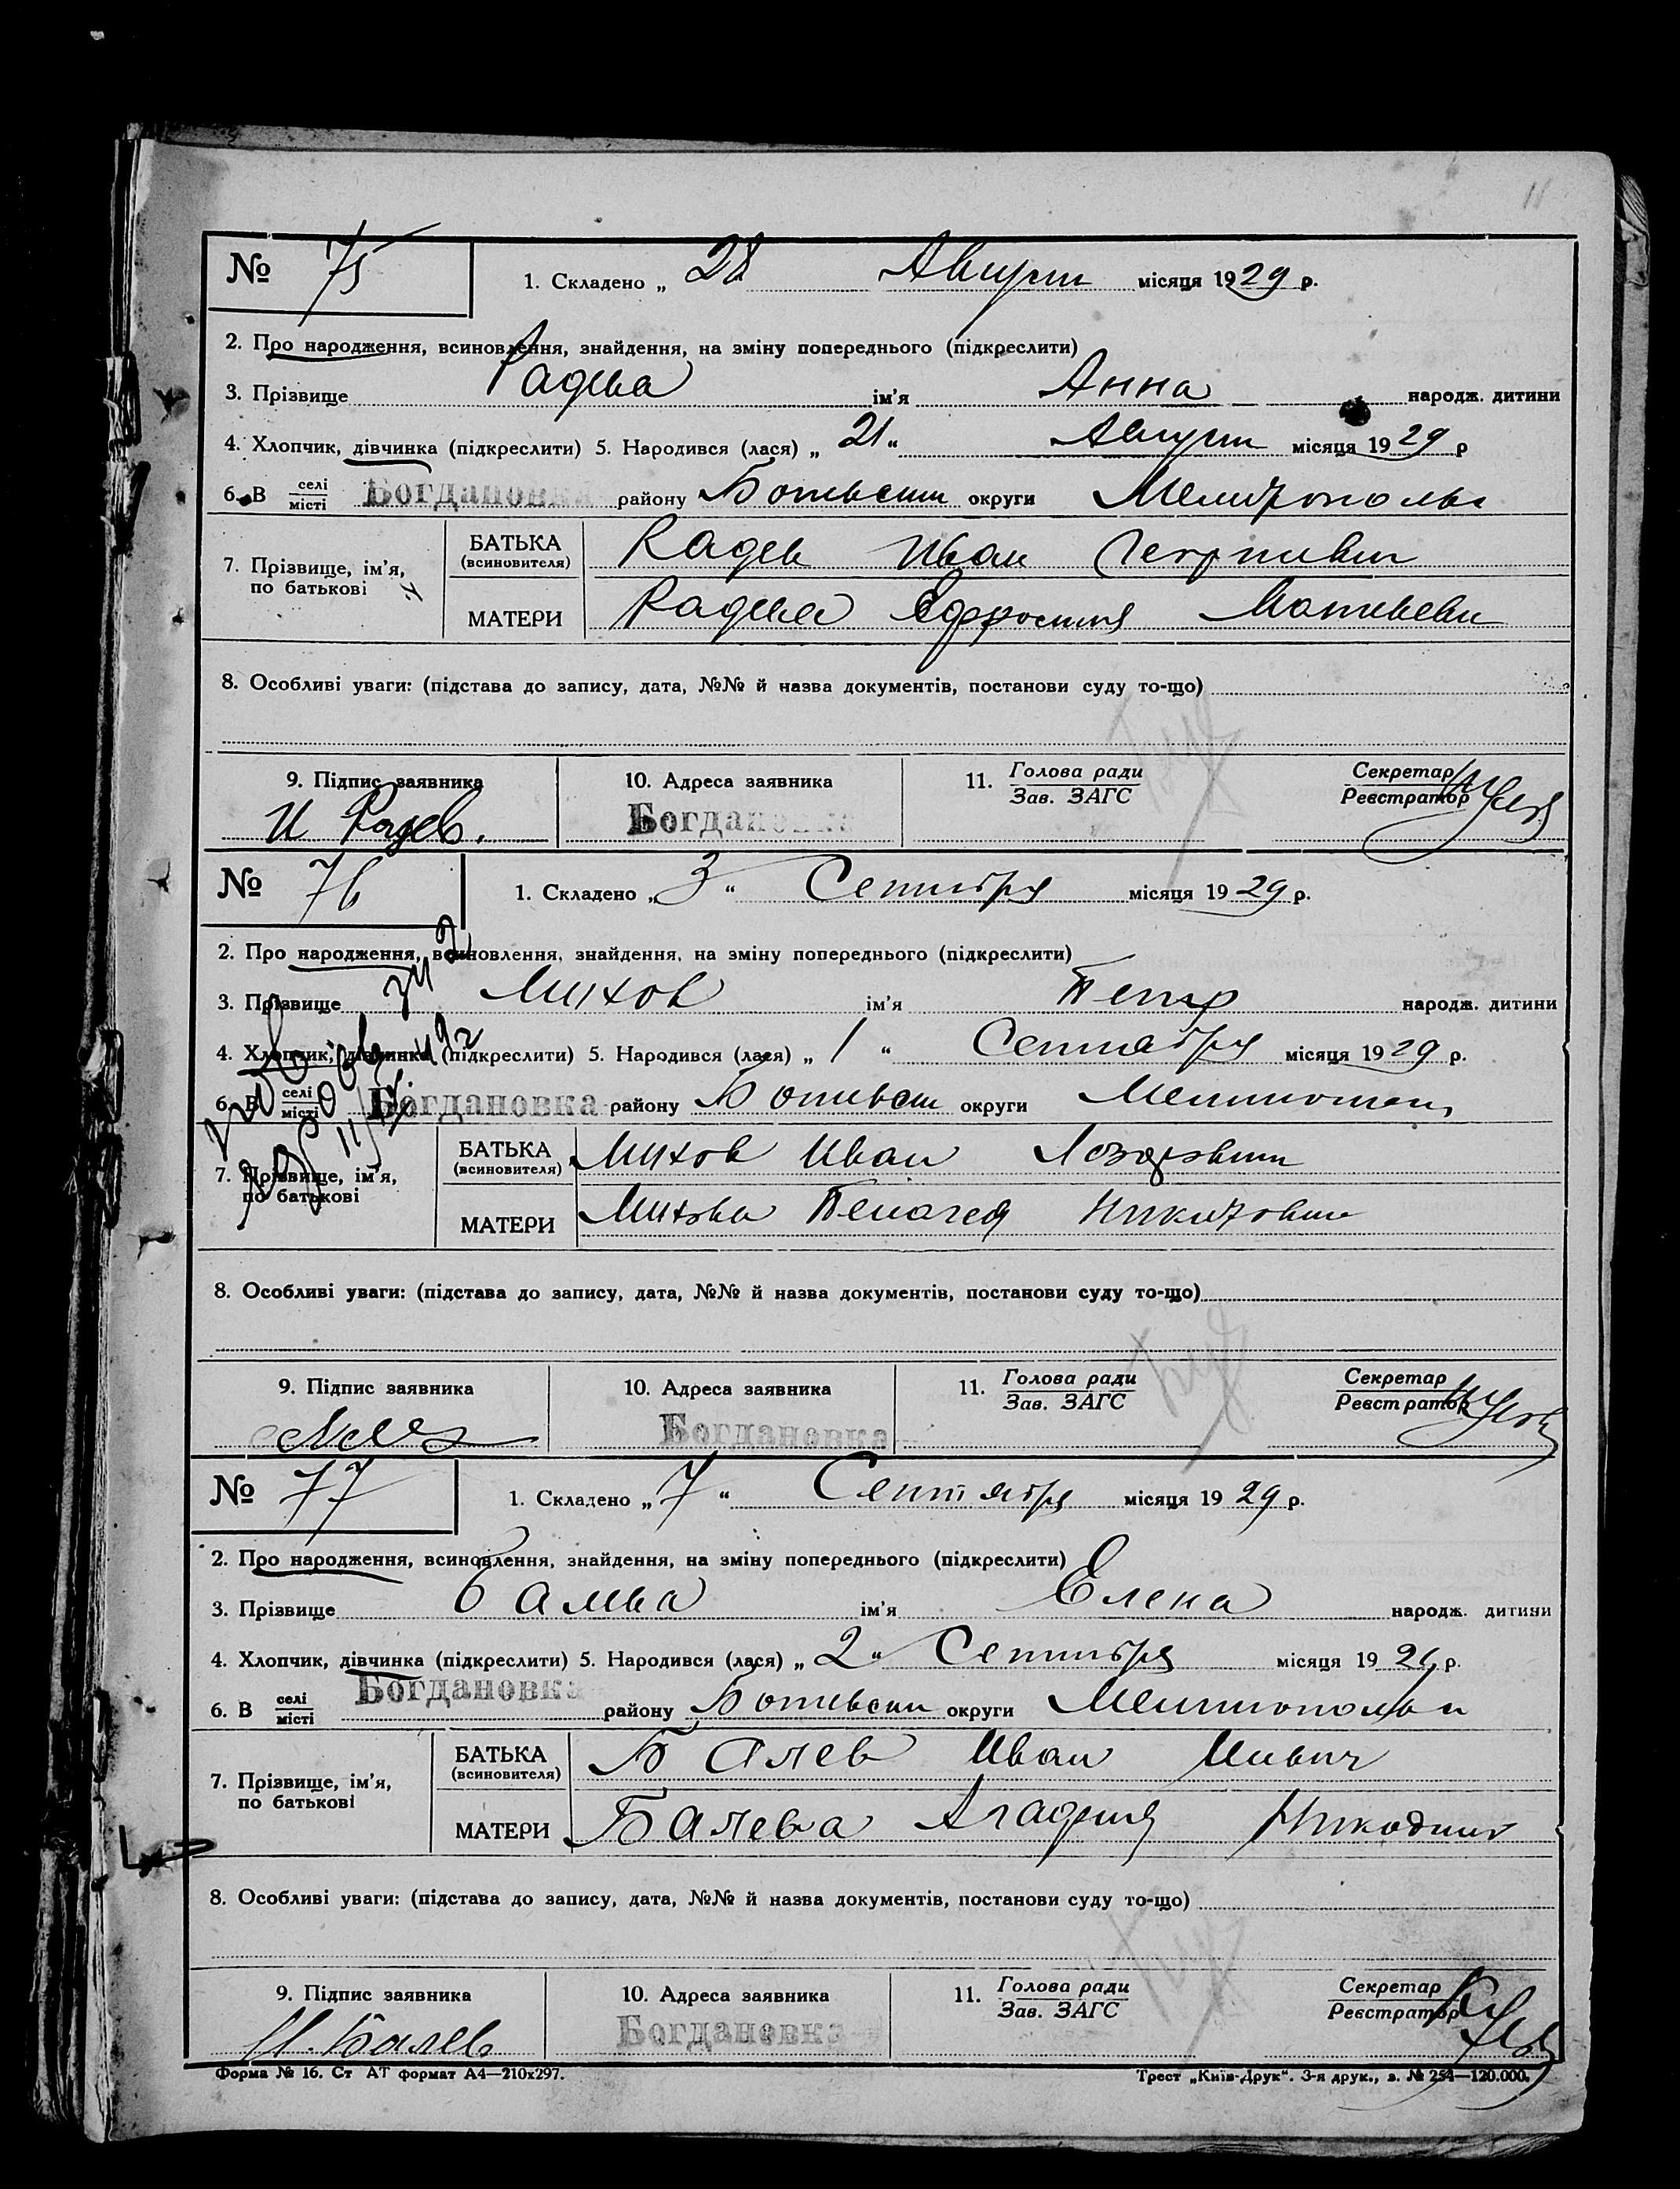 № 75 1. Складено „ 28 Август місяця 1929 р.
2. Про народження, всиновлення, знайдення, на зміну попереднього (підкреслити)
3. Прізвище Радева ім'я Анна народж. дитини
4. Хлопчик, дівчинка (підкреслити) 5. Народився (лася) „ 21 “ Август місяця 1929 р
6. В селі місті Богдановка району округи
7. Прізвище, ім'я, по батькові БАТЬКА (всиновителя) Радев Иван
МАТЕРИ Радева
8. Особливі уваги: (підстава до запису, дата, №№ й назва документів, постанови суду то-що)
9. Підпис заявника 10. Адреса заявника 11. Голова ради Зав. ЗАГС Секретар Реєстратор
И Радев. Богдановка
№ 76 1. Складено „ 3 “ Сентября місяця 1929 р.
2. Про народження, всиновлення, знайдення, на зміну попереднього (підкреслити)
3. Прізвище Михов ім'я Петр народж. дитини
4. Хлопчик, дівчинка (підкреслити) 5. Народився (лася) „ 1 “ Сентября місяця 1929 р.
6. В селі місті Богдановка району округи
7. Прізвище, ім'я, по батькові БАТЬКА (всиновителя) Михов Иван
МАТЕРИ Михова
8. Особливі уваги: (підстава до запису, дата, №№ й назва документів, постанови суду то-що)
9. Підпис заявника 10. Адреса заявника 11. Голова ради Зав. ЗАГС Секретар Реєстратор
Богдановка
№ 77 1. Складено „ 7 “ Сентября місяця 1929 р.
2. Про народження, всиновлення, знайдення, на зміну попереднього (підкреслити)
3. Прізвище ім'я Елена народж. дитини
4. Хлопчик, дівчинка (підкреслити) 5. Народився (лася) „ 2 “ Сентября місяця 1929 р.
6. В селі місті Богдановка району округи
7. Прізвище, ім'я, по батькові БАТЬКА (всиновителя) Балев Иван
МАТЕРИ Балева Агафия
8. Особливі уваги: (підстава до запису, дата, №№ й назва документів, постанови суду то-що)
9. Підпис заявника 10. Адреса заявника 11. Голова ради Зав. ЗАГС Секретар Реєстратор
И. Балев Богдановка
Форма № 16. Ст АТ формат А4—210х297. Трест „Київ-Друк“. 3-я друк., з. № 254—120.000.